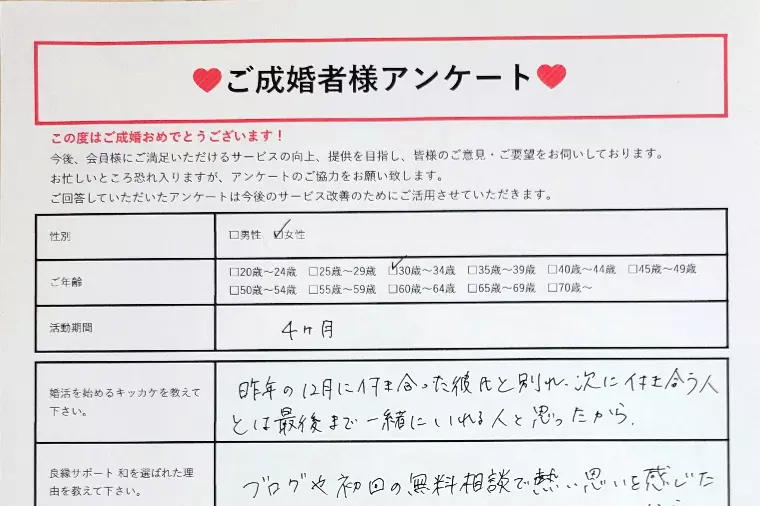 ❤ご成婚者様アンケート❤
この度はご成婚おめでとうございます！
今後、会員様にご満足いただけるサービスの向上、提供を目指し、皆様のご意見・ご要望をお伺いしております。
お忙しいところ恐れ入りますが、アンケートのご協力をお願い致します。
ご回答していただいたアンケートは今後のサービス改善のためにご活用させていただきます。
性別
□男性 ☑女性
ご年齢
□20歳～24歳 □25歳～29歳 ☑30歳～34歳 □35歳～39歳 □40歳～44歳 □45歳～49歳
□50歳～54歳 □55歳～59歳 □60歳～64歳 □65歳～69歳 □70歳～
活動期間
4ヶ月
婚活を始めるキッカケを教えて
下さい。
昨年の12月に付き合った彼氏と別れ、次に付き合う人
とは最後まで一緒にいれる人と思ったから。
良縁サポート 和を選ばれた理
由を教えて下さい。
ブログや初回の無料相談で熱い思いを感じた